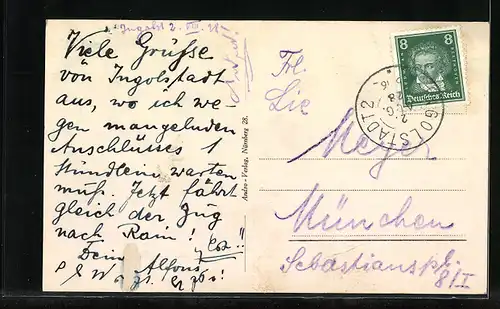 Ingolst. 2. VIII.
Viele Grüsse
von Ingolstadt
aus, wo ich we-
gen mangelnden
Anschlusses 1
Stündlein warten
muß. Jetzt fährt
gleich der Zug
nach Rain!
Dein
Alfons
Andro-Verlag, Nürnberg 28.
8 8
Deutsches Reich
INGOLSTADT 2
Frl.
Meyer
München
Sebastianspl.
8/I